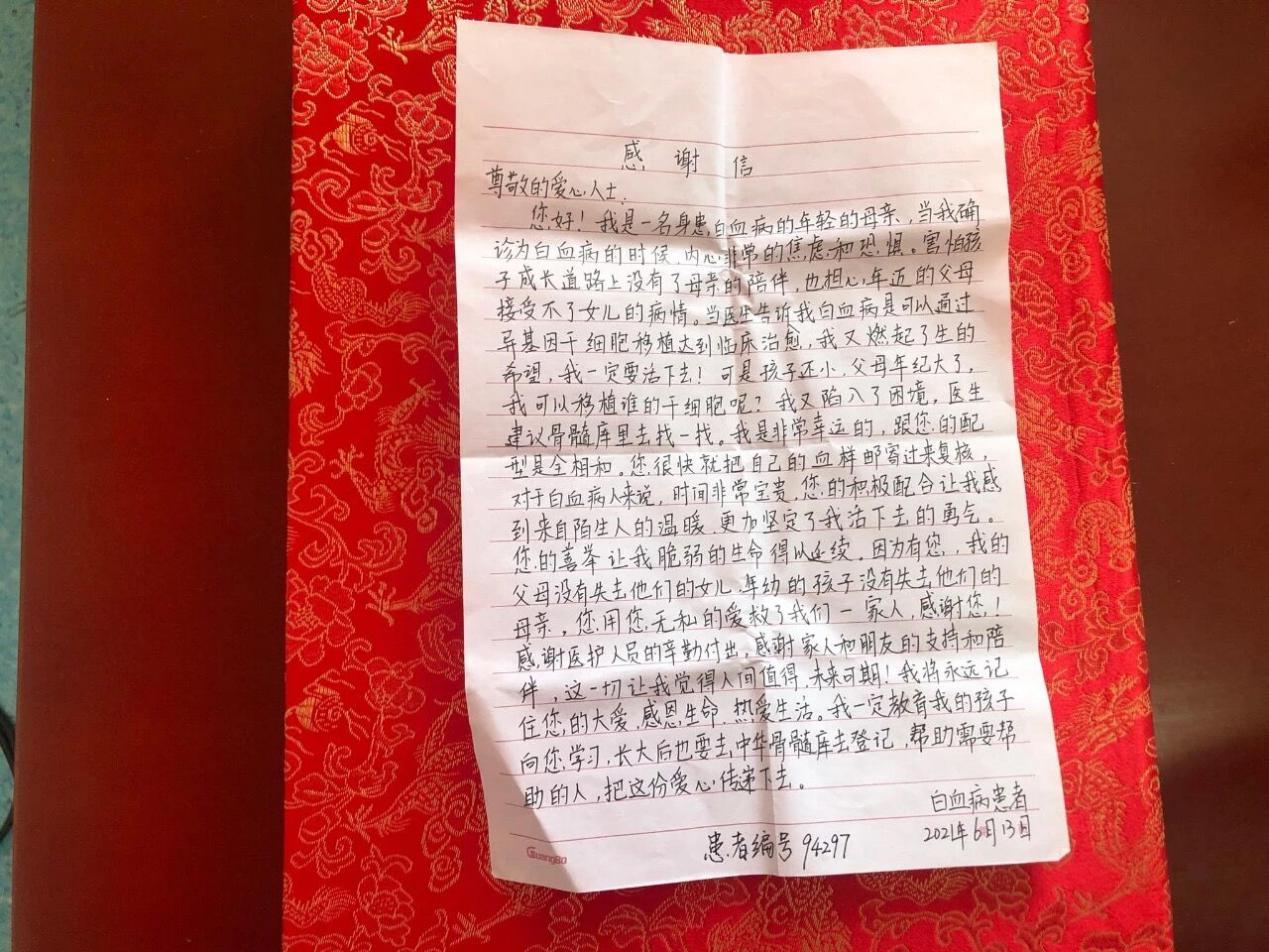 感谢信
尊敬的爱心人士:
您好!我是一名身患白血病的年轻的母亲,当我确
诊为白血病的时候,内心非常的焦虑和恐惧。害怕孩
子成长道路上没有了母亲的陪伴,也担心年迈的父母
接受不了女儿的病情。当医生告诉我白血病是可以通过
异基因干细胞移植达到临床治愈,我又燃起了生的
希望,我一定要活下去!可是孩子还小,父母年纪大了,
我可以移植谁的干细胞呢?我又陷入了困境,医生
建议骨髓库里去找一找。我是非常幸运的,跟您的配
型是全相和。您很快就把自己的血样邮寄过来复核,
对于白血病人来说,时间非常宝贵,您的积极配合让我感
到来自陌生人的温暖,更加坚定了我活下去的勇气。
您的善举让我脆弱的生命得以延续。因为有您,我的
父母没有失去他们的女儿,年幼的孩子没有失去他们的
母亲,您用您无私的爱救了我们一家人,感谢您!
感谢医护人员的辛勤付出,感谢家人和朋友的支持和陪
伴,这一切让我觉得人间值得,未来可期!我将永远记
住您的大爱,感恩生命,热爱生活。我一定教育我的孩子
向您学习,长大后也要去中华骨髓库去登记,帮助需要帮
助的人,把这份爱心传递下去。
白血病患者
2021年6月13日
患者编号94297
GuangBo